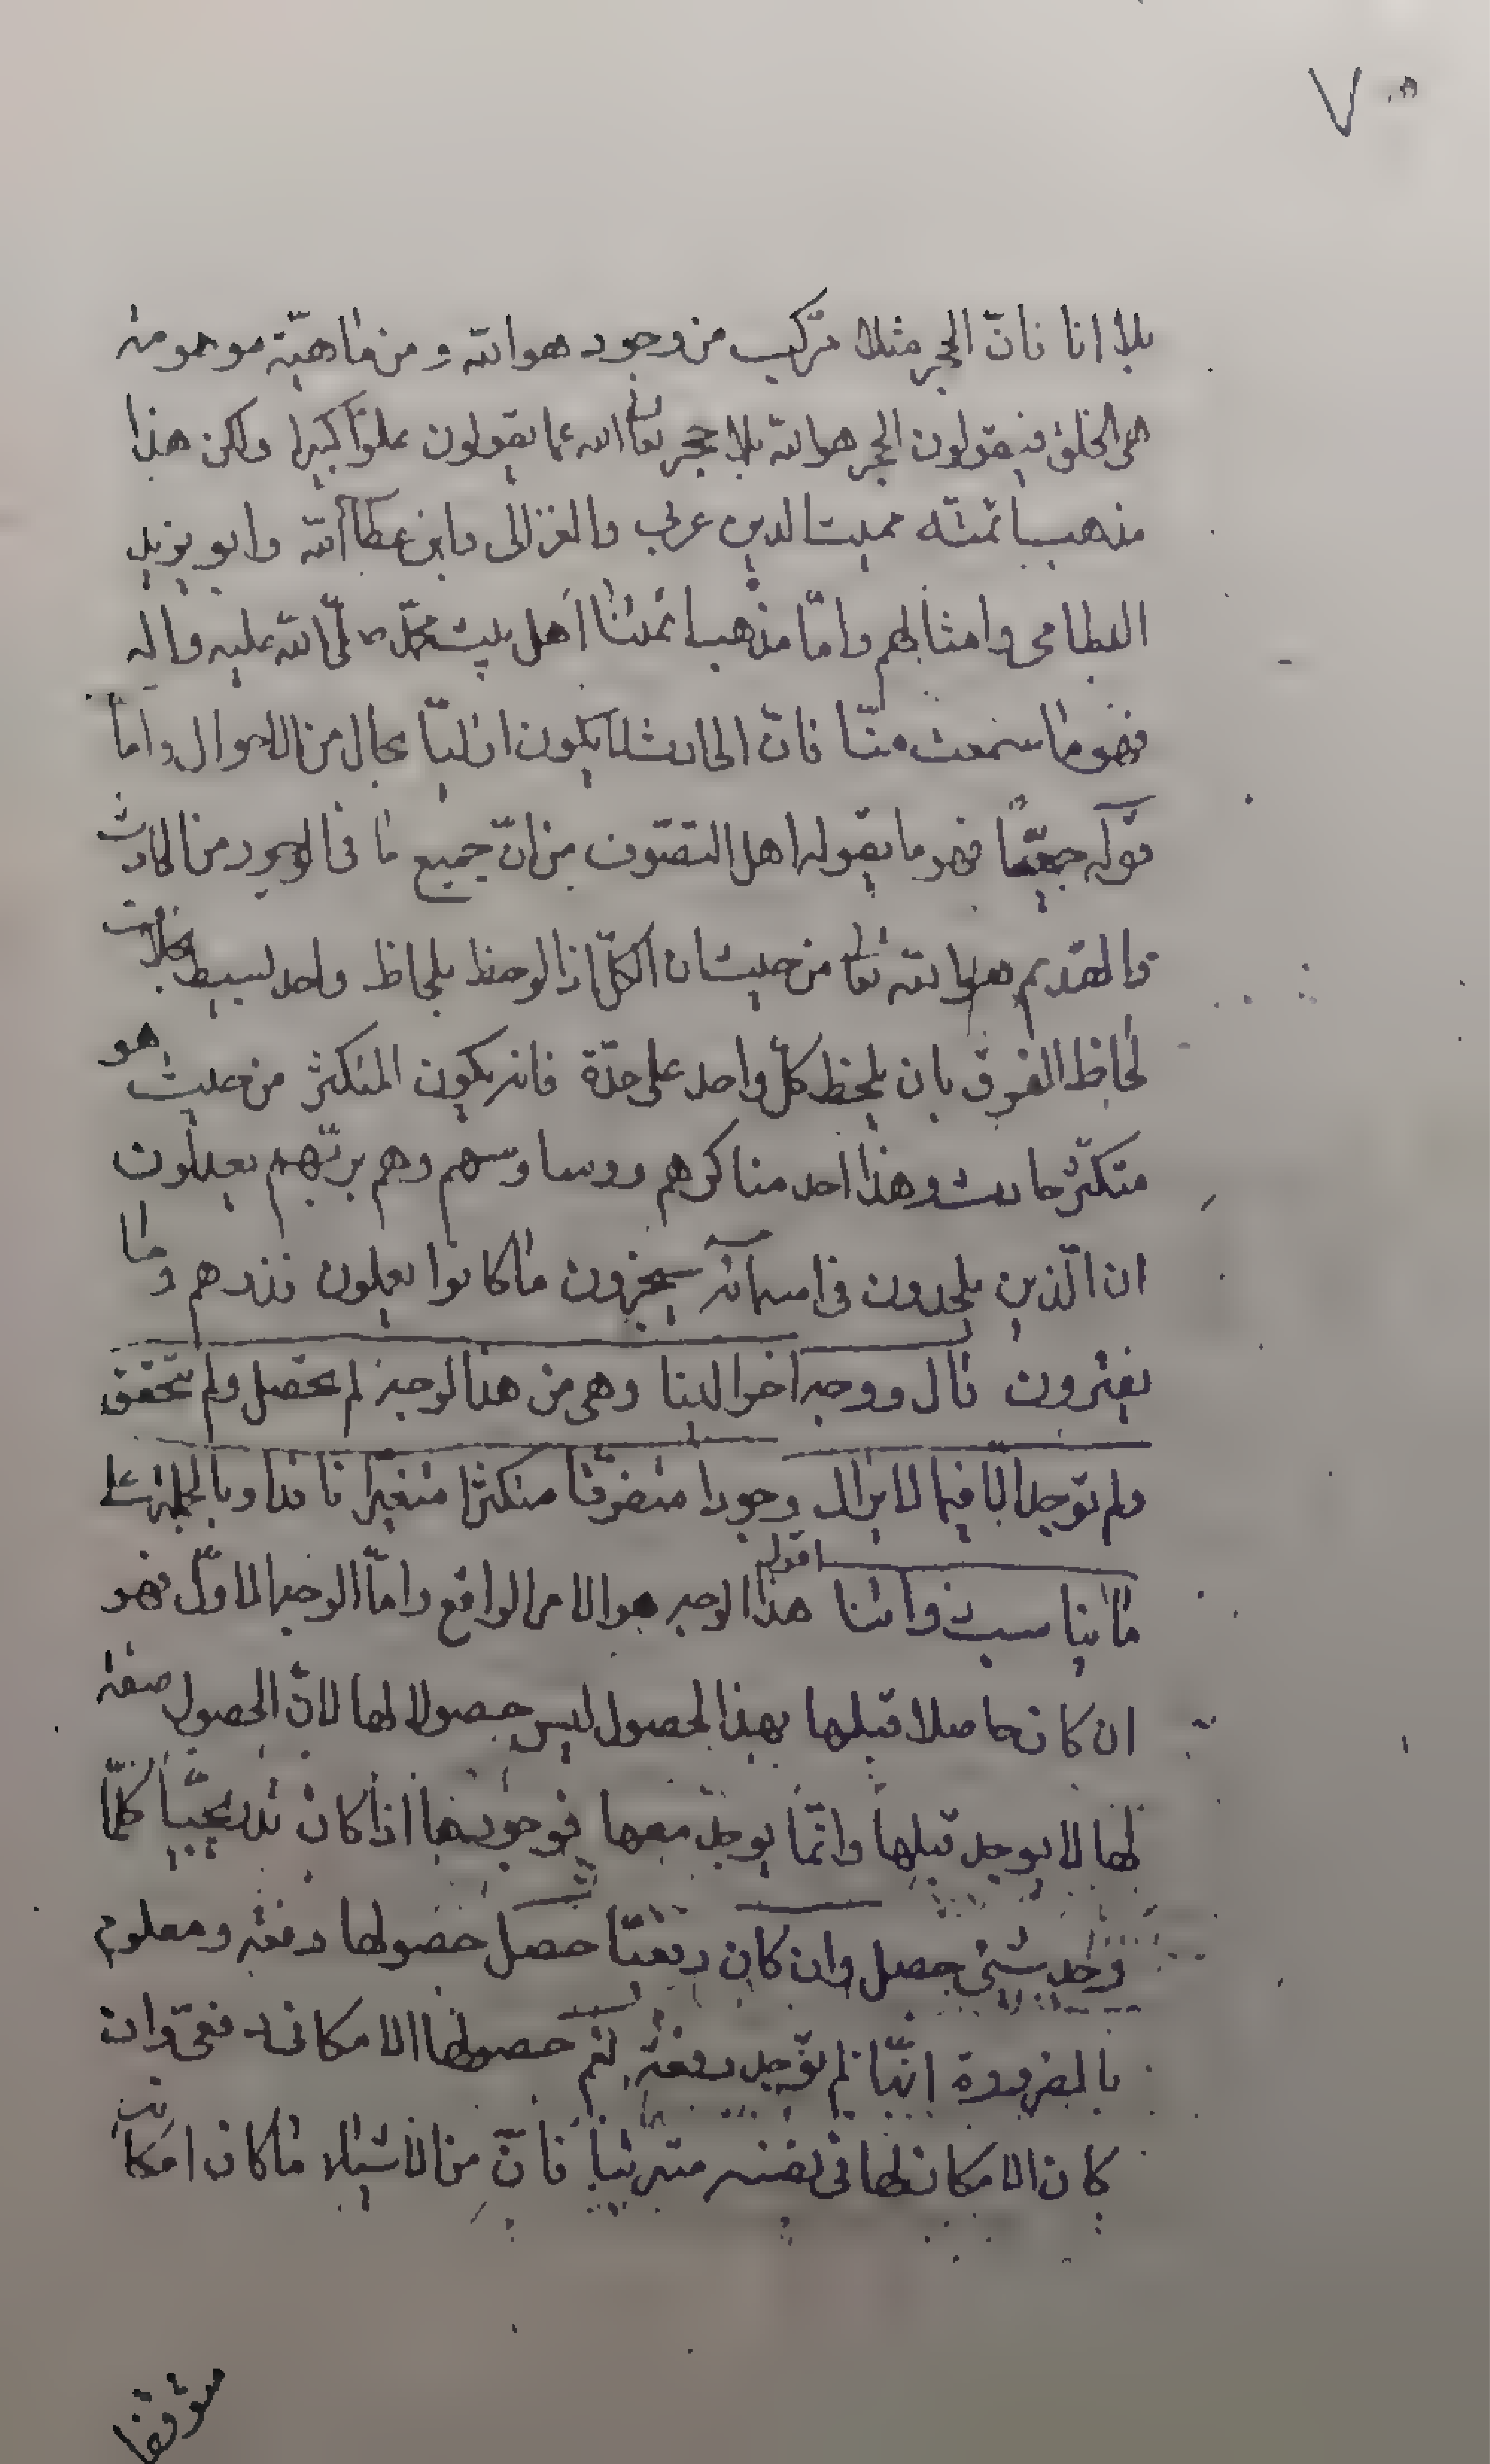 ٧
بلا انا فانّ الحجر مثلا مركّب من وجود هو اللّه و من ماهيّة موهومة
هى الخلق فيقولون الحجر هو اللّه بلا حجر تعالى اللّه عما يقولون علوّا كبيرا ولكن هذا
مذهب ائمته مميت الدين عربى والغزالى وابن عطاء اللّه وابو يزيد
البسطامى وامثالهم وامّا مذهب ائمتنا اهل بيت محمّد صلّى اللّه عليه واله
فهو ما سمعت منّا فانّ الحادث لا يكون ازليّا بحال من الاحوال وامّا
قوله جمعيّا فهو ما يقوله اهل التصوّف من انّ جميع ما فى الوجود من الحادث
والقديم هو اللّه تعالى من حيث ان الكلّ اذا لوحظ بلحاظ واحد بسيط بخلاف
لحاظ الفرق بان يلحظ كلّ واحد على حدّة فانه يكون المتكثّر من حيث هو
متكثّر حادث و هذا احد مناكرهم ووساوسهم وهم بربّهم يعدلون
ان الّذين يلحدون فى اسمائه سيجزون ما كانوا يعملون فذرهم وما
يفترون قال ووجه اخر الينا وهى من هذا الوجه لم تحصل ولم تتحقق
ولم توجد الّا فيما لا يزال وجودا متفرّقا متكثرا متغيّرا نافدا وبالجملة على
ما يناسب ذواتنا اقول هذا الوجه هو الامر الواقع وامّا الوجه الاوّل فهو
ان كان حاصلا قبلها بهذا الحصول ليس حصولا لها لانّ الحصول صفة
لها لا يوجد قبلها وانّما يوجد معها فوجودها اذا كان تدريجيّا كلّما
وجد شئ حصل وان كان دفعيّا حصل حصولها دفعة ومعلوم
بالضرورة انّها لم توجد دفعة نعم حصولها الامكانى دفعىّ وان
كان الامكان لها فى نفسه مترتبا فانّ من الاشياء ما كان امكانه